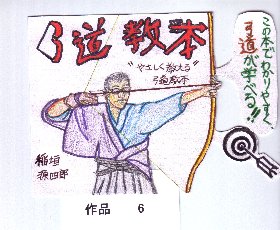 弓道教本
"やさしく教える"
弓道教本
この本でわかりやすく
弓道が学べる!!
稲垣
源四郎
作品　6